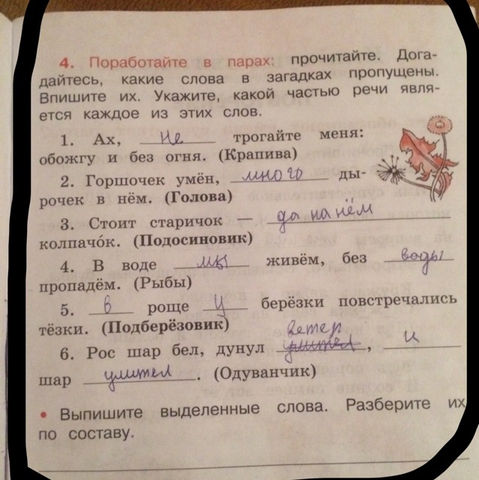 4. Поработайте в парах: прочитайте. Дога-
дайтесь, какие слова в загадках пропущены.
Впишите их. Укажите, какой частью речи явля-
ется каждое из этих слов.
1. Ах, не трогайте меня:
обожгу и без огня. (Крапива)
2. Горшочек умён, много ды-
рочек в нём. (Голова)
3. Стоит старичок — да на нём
колпачо́к. (Подосиновик)
4. В воде мы живём, без воды
пропадём. (Рыбы)
5. в роще у берёзки повстречались
тёзки. (Подберёзовик)
ветер
6. Рос шар бел, дунул улител, и
шар улител. (Одуванчик)
• Выпишите выделенные слова. Разберите их
по составу.